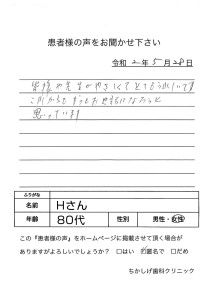 患者様の声をお聞かせ下さい
令和 2年 5月 28日
皆様や先生がやさしくてとてもうれしいです
これからもずっとお世話になろうと
思っています
ふりがな
名前 Hさん
年齢 80代 性別 男性・女性
この『患者様の声』をホームページに掲載させて頂く場合が
ありますがよろしいでしょうか? □はい ☑匿名で □だめ
ちかしげ歯科クリニック